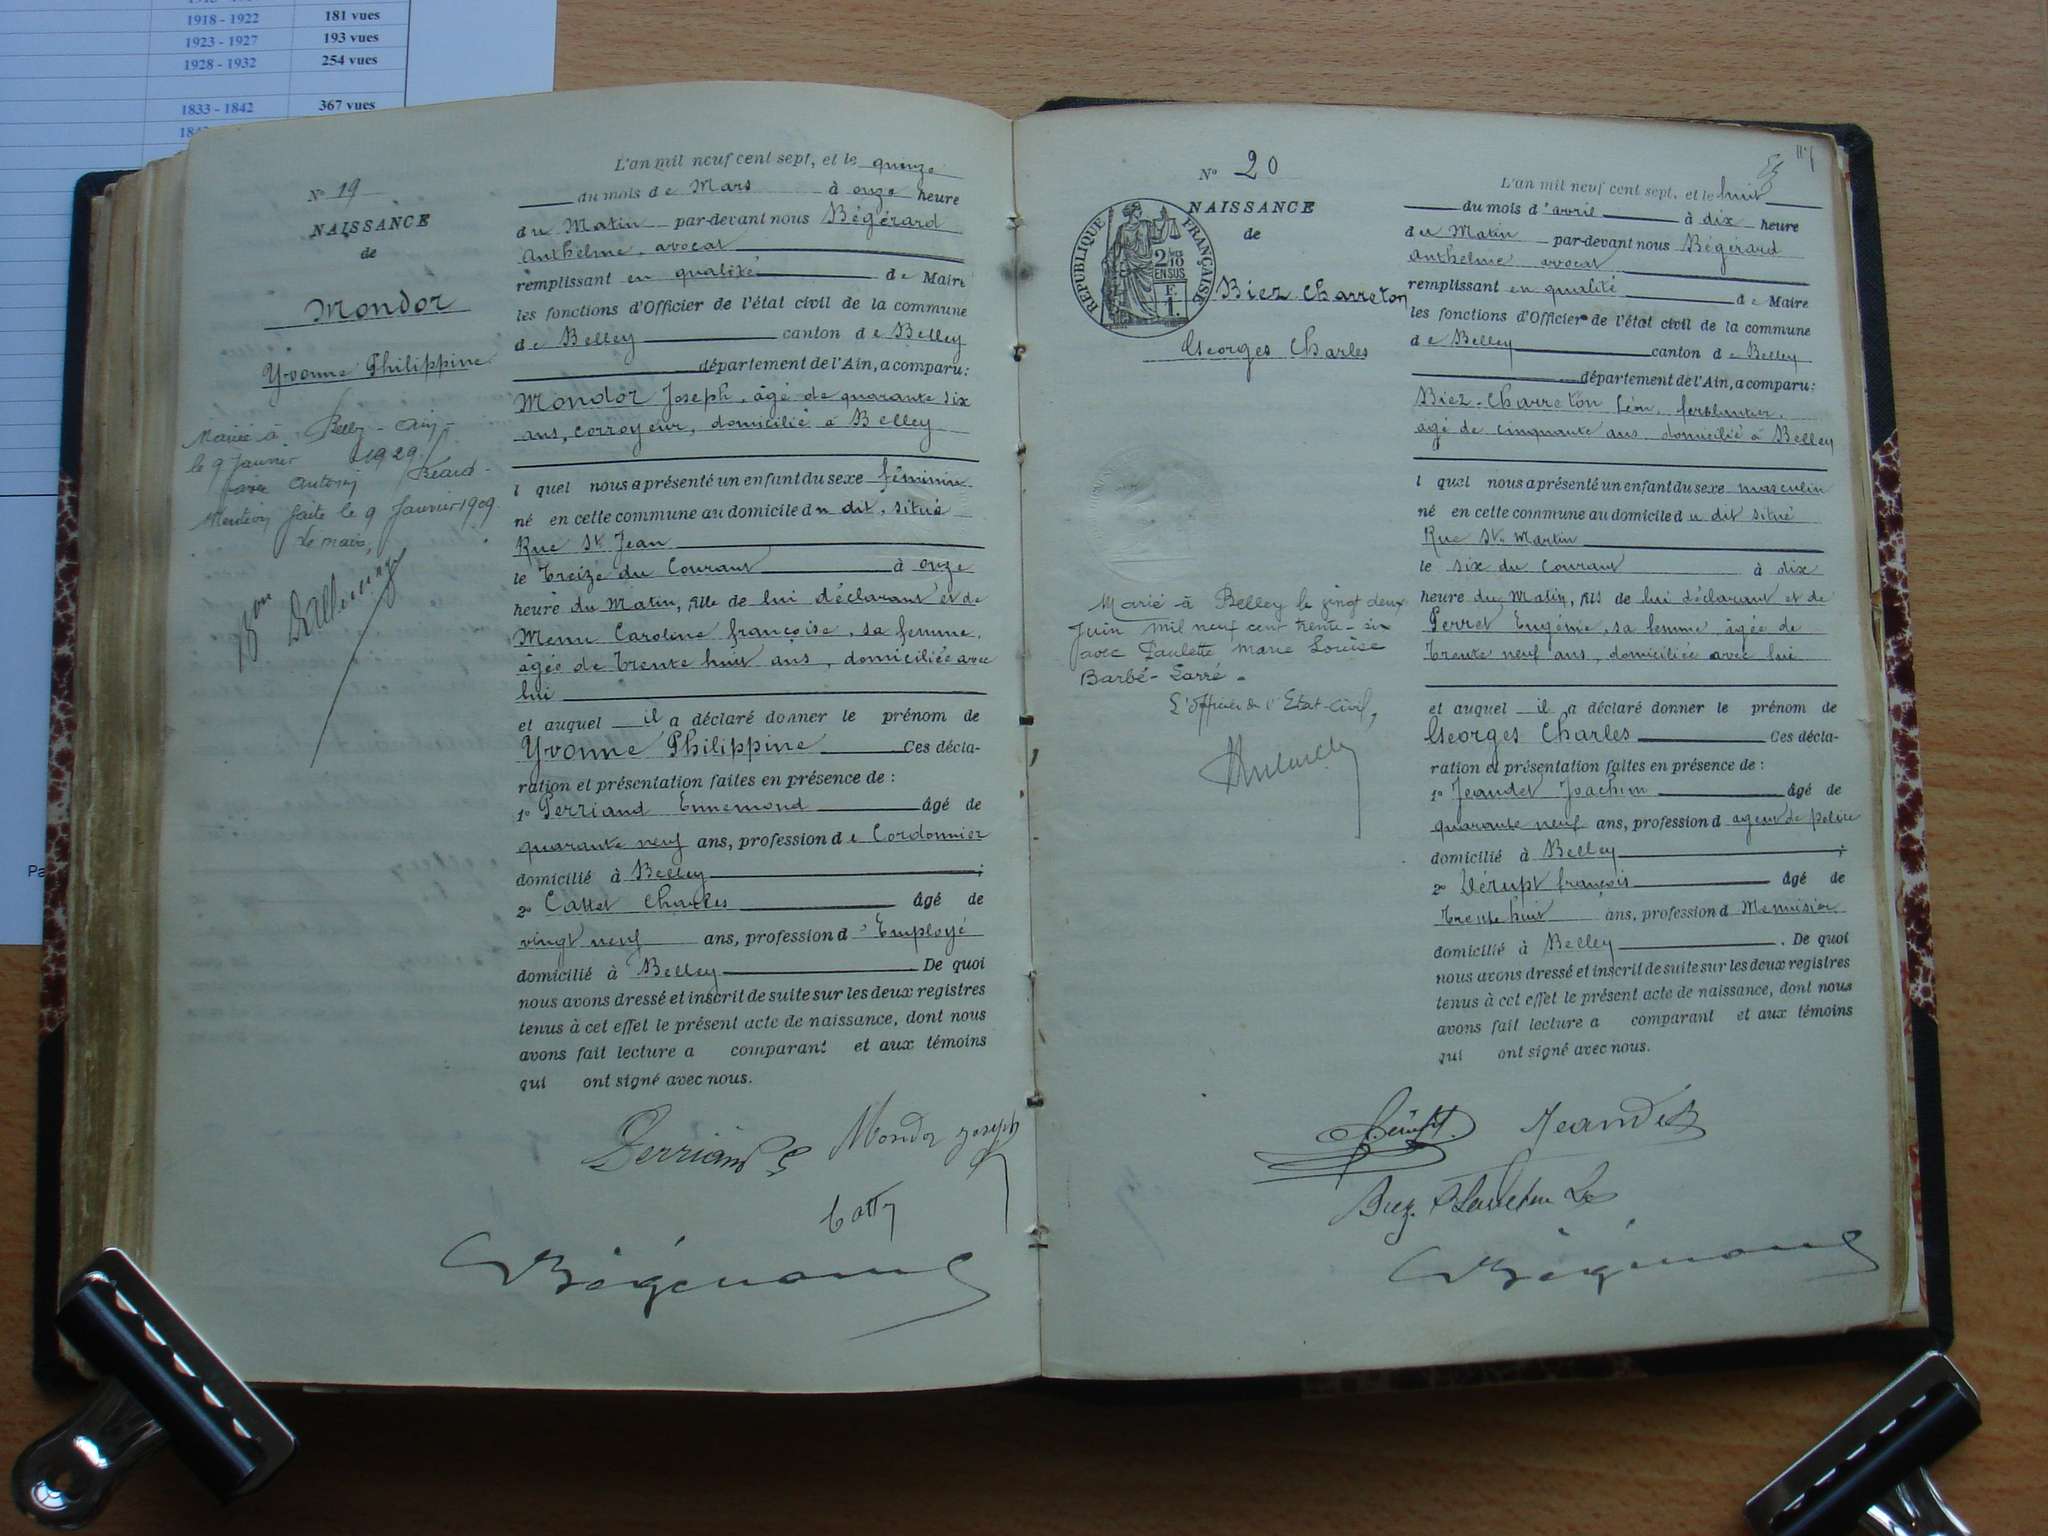 1918 - 1922 181 vues
1923 - 1927 193 vues
1928 - 1932 254 vues
1833 - 1842 367 vues
Pa
N° 19
NAISSANCE
de
Mondor
Yvonne Philippine
Mariée à Belley - Ain -
le 9 Janvier 1929
avec Antonin Béard -
Mention faite le 9 Janvier 1909.
Le maire,
L'an mil neuf cent sept, et le quinze
du mois de Mars à onze heure
du Matin par-devant nous Bégérard
Anthelme, avocat
remplissant en qualité de Maire
les fonctions d'Officier de l'état civil de la commune
de Belley canton de Belley
département de l'Ain, a comparu:
Mondor Joseph, âgé de quarante six
ans, corroyeur, domicilié à Belley
l quel nous a présenté un enfant du sexe féminin
né en cette commune au domicile du dit, situé
Rue St Jean
le treize du Courant à onze
heure du Matin, fille de lui déclarant et de
Menu Caroline françoise, sa femme,
âgée de trente huit ans, domiciliée avec
lui
et auquel il a déclaré donner le prénom de
Yvonne Philippine Ces décla-
ration et présentation faites en présence de :
1° Perriand Ennemond âgé de
quarante neuf ans, profession de Cordonnier
domicilié à Belley ;
2° Cattet Charles âgé de
vingt neuf ans, profession d'Employé
domicilié à Belley De quoi
nous avons dressé et inscrit de suite sur les deux registres
tenus à cet effet le présent acte de naissance, dont nous
avons fait lecture a comparant et aux témoins
qui ont signé avec nous.
Perriand E Mondor Joseph
N° 20
NAISSANCE
de
RÉPUBLIQUE FRANÇAISE
2/10 EN SUS
F. 1.
Biez-Charreton
Georges Charles
Marié à Belley le vingt deux
Juin mil neuf cent trente-six
avec Paulette Marie Louise
Barbé-Larré.
L'Officier de l'Etat-Civil,
L'an mil neuf cent sept, et le huit
du mois d'avril à dix heure
du Matin par-devant nous Bégérard
Anthelme avocat
remplissant en qualité de Maire
les fonctions d'Officier de l'état civil de la commune
de Belley canton de Belley
département de l'Ain, a comparu:
Biez-Charreton Léon, ferblantier,
âgé de cinquante ans domicilié à Belley
l quel nous a présenté un enfant du sexe masculin
né en cette commune au domicile du dit situé
Rue St Martin
le six du Courant à dix
heure du Matin, fils de lui déclarant et de
Perret Eugénie, sa femme, âgée de
trente neuf ans, domiciliée avec lui
et auquel il a déclaré donner le prénom de
Georges Charles Ces décla-
ration et présentation faites en présence de :
1° Jeandet Joachim âgé de
quarante neuf ans, profession d agent de police
domicilié à Belley ;
2° Vérupt françois âgé de
trente huit ans, profession d Menuisier
domicilié à Belley . De quoi
nous avons dressé et inscrit de suite sur les deux registres
tenus à cet effet le présent acte de naissance, dont nous
avons fait lecture a comparant et aux témoins
qui ont signé avec nous.
Jeandet